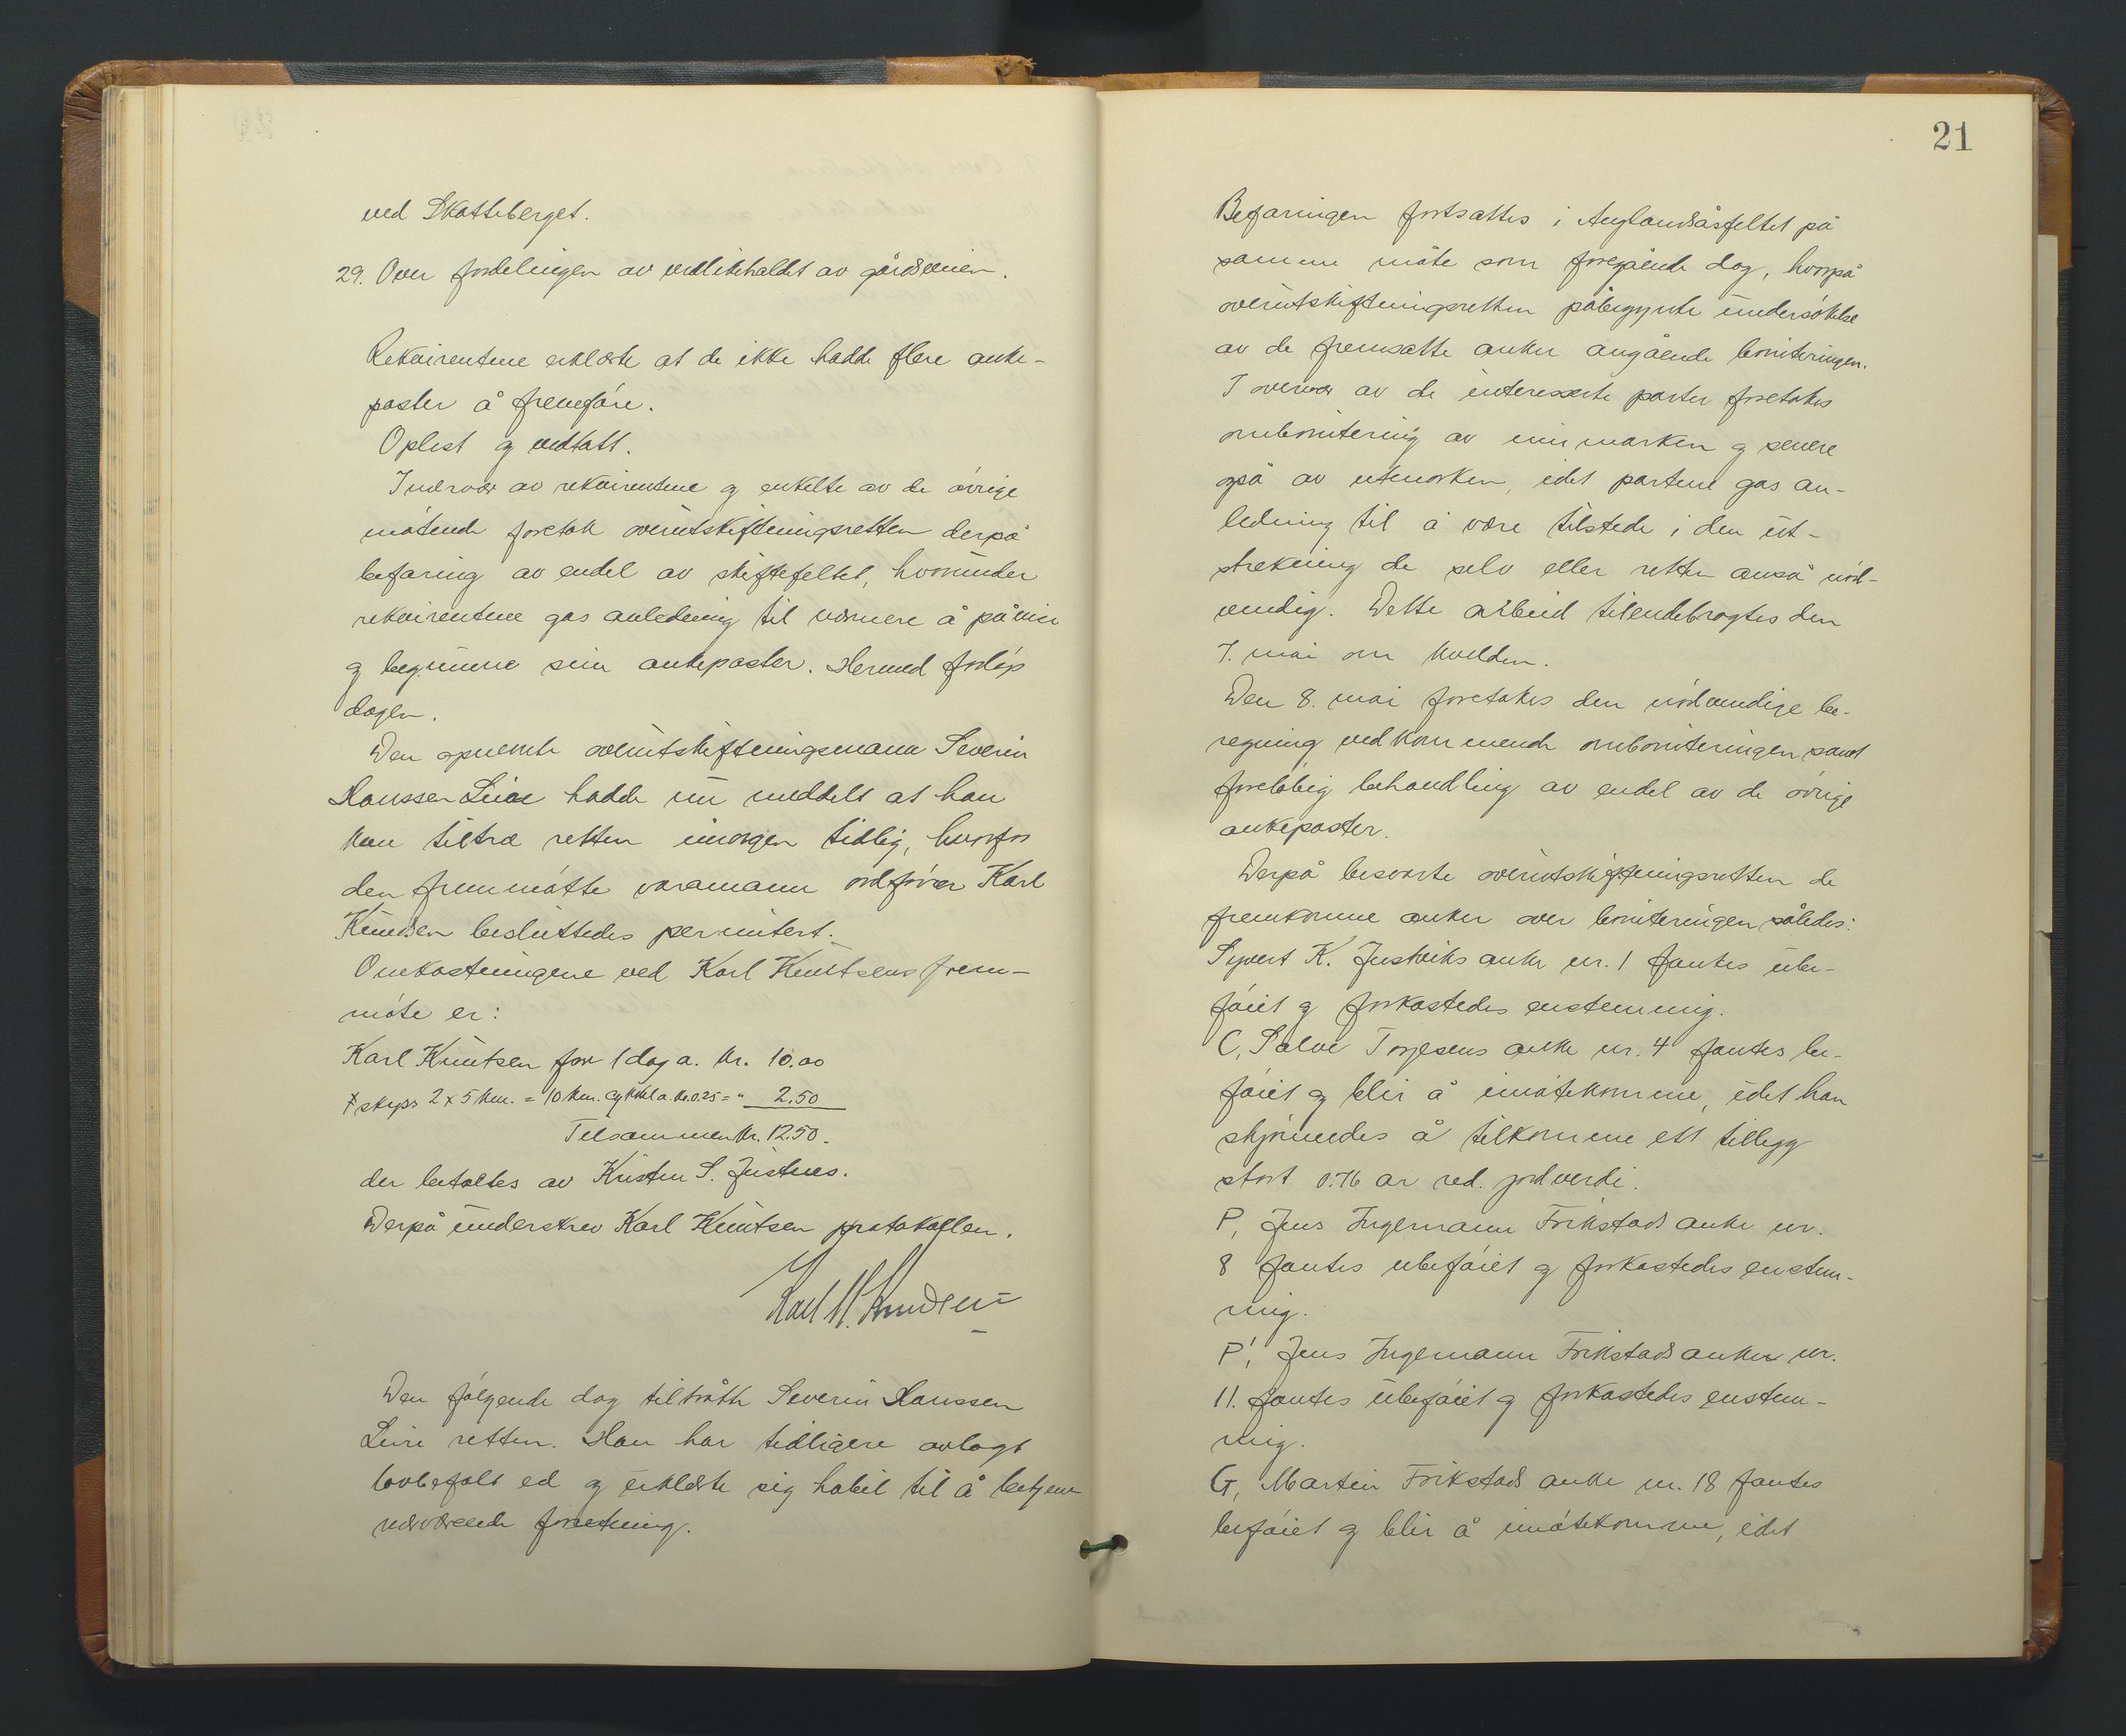 ved Skatteberget.
29. Over fordelingen av vedlikehaldet av gårdsveien.
Rekvirentene erklærte at de ikke hadde flere anke-
poster å fremføre.
Oplest og vedtatt.
I nærvær av rekvirentene og enkelte av de øvrige
møtende foretok overutskiftningsretten derpå
befaring av endel av skiftefeltet, hvorunder
rekvirentene gas anledning til nærmere å påvise
og begrunne sine ankeposter. Hermed forløp
dagen.
Den opnevnte overutskiftningsmann Severin
Hanssen Leire hadde nu meddelt at han
kan tiltræ retten imorgen tidlig, hvorfor
den fremmøtte varamann ordfører Karl
Knudsen besluttedes permitert.
Omkostningene ved Karl Knutsens frem-
møte er:
Karl Knutsen for 1 dag a. kr. 10.00
skyss 2 x 5 km. = 10 km. cykkel a. kr. 0.25 = " 2.50
Tilsammen kr. 12.50.
der betaltes av Kristen S. Justnes.
Derpå underskrev Karl Knutsen protokollen.
Karl Knudsen
Den følgende dag tiltrådte Severin Hanssen
Leire retten. Han har tidligere avlagt
lovbefalt ed og erklærte sig habil til å betjene
nærværende forretning.
21
Befaringen fortsattes i Auglandsåsfeltet på
samme måte som foregående dag, hvorpå
overutskiftningsretten påbegynte undersøkelse
av de fremsatte anker angående boniteringen.
I overvær av de interesserte parter foretokes
ombonitering av innmarken og senere
også av utmarken, idet partene gas an-
ledning til å være tilstede i den ut-
strekning de selv eller retten anså nød-
vendig. Dette arbeid tilendebragtes den
7. mai om kvelden.
Den 8. mai foretokes den nødvendige be-
regning vedkommende omboniteringen samt
foreløbig behandling av endel av de øvrige
ankeposter.
Derpå besvarte overutskiftningsretten de
fremkomne anker over boniteringen således:
Syvert K. Justviks anke nr. 1 fantes ube-
føiet og forkastedes enstemmig.
C, Salve Torjesens anke nr. 4 fantes be-
føiet og blir å imøtekomme, idet han
skjønnedes å tilkomme ett tillegg
stort 0.76 ar red. jordverdi.
P, Jens Ingemann Frikstads anke nr.
8 fantes ubeføiet og forkastedes enstem-
mig.
P', Jens Ingemann Frikstads anker nr.
11. fantes ubeføiet og forkastedes enstem-
mig.
G, Martin Frikstads anke nr. 18 fantes
beføiet og blir å imøtekomme, idet